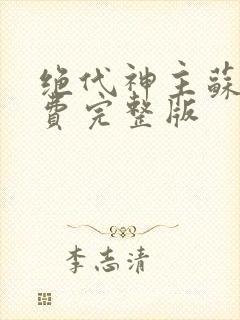 绝代神主蘇
費完整版
李志清